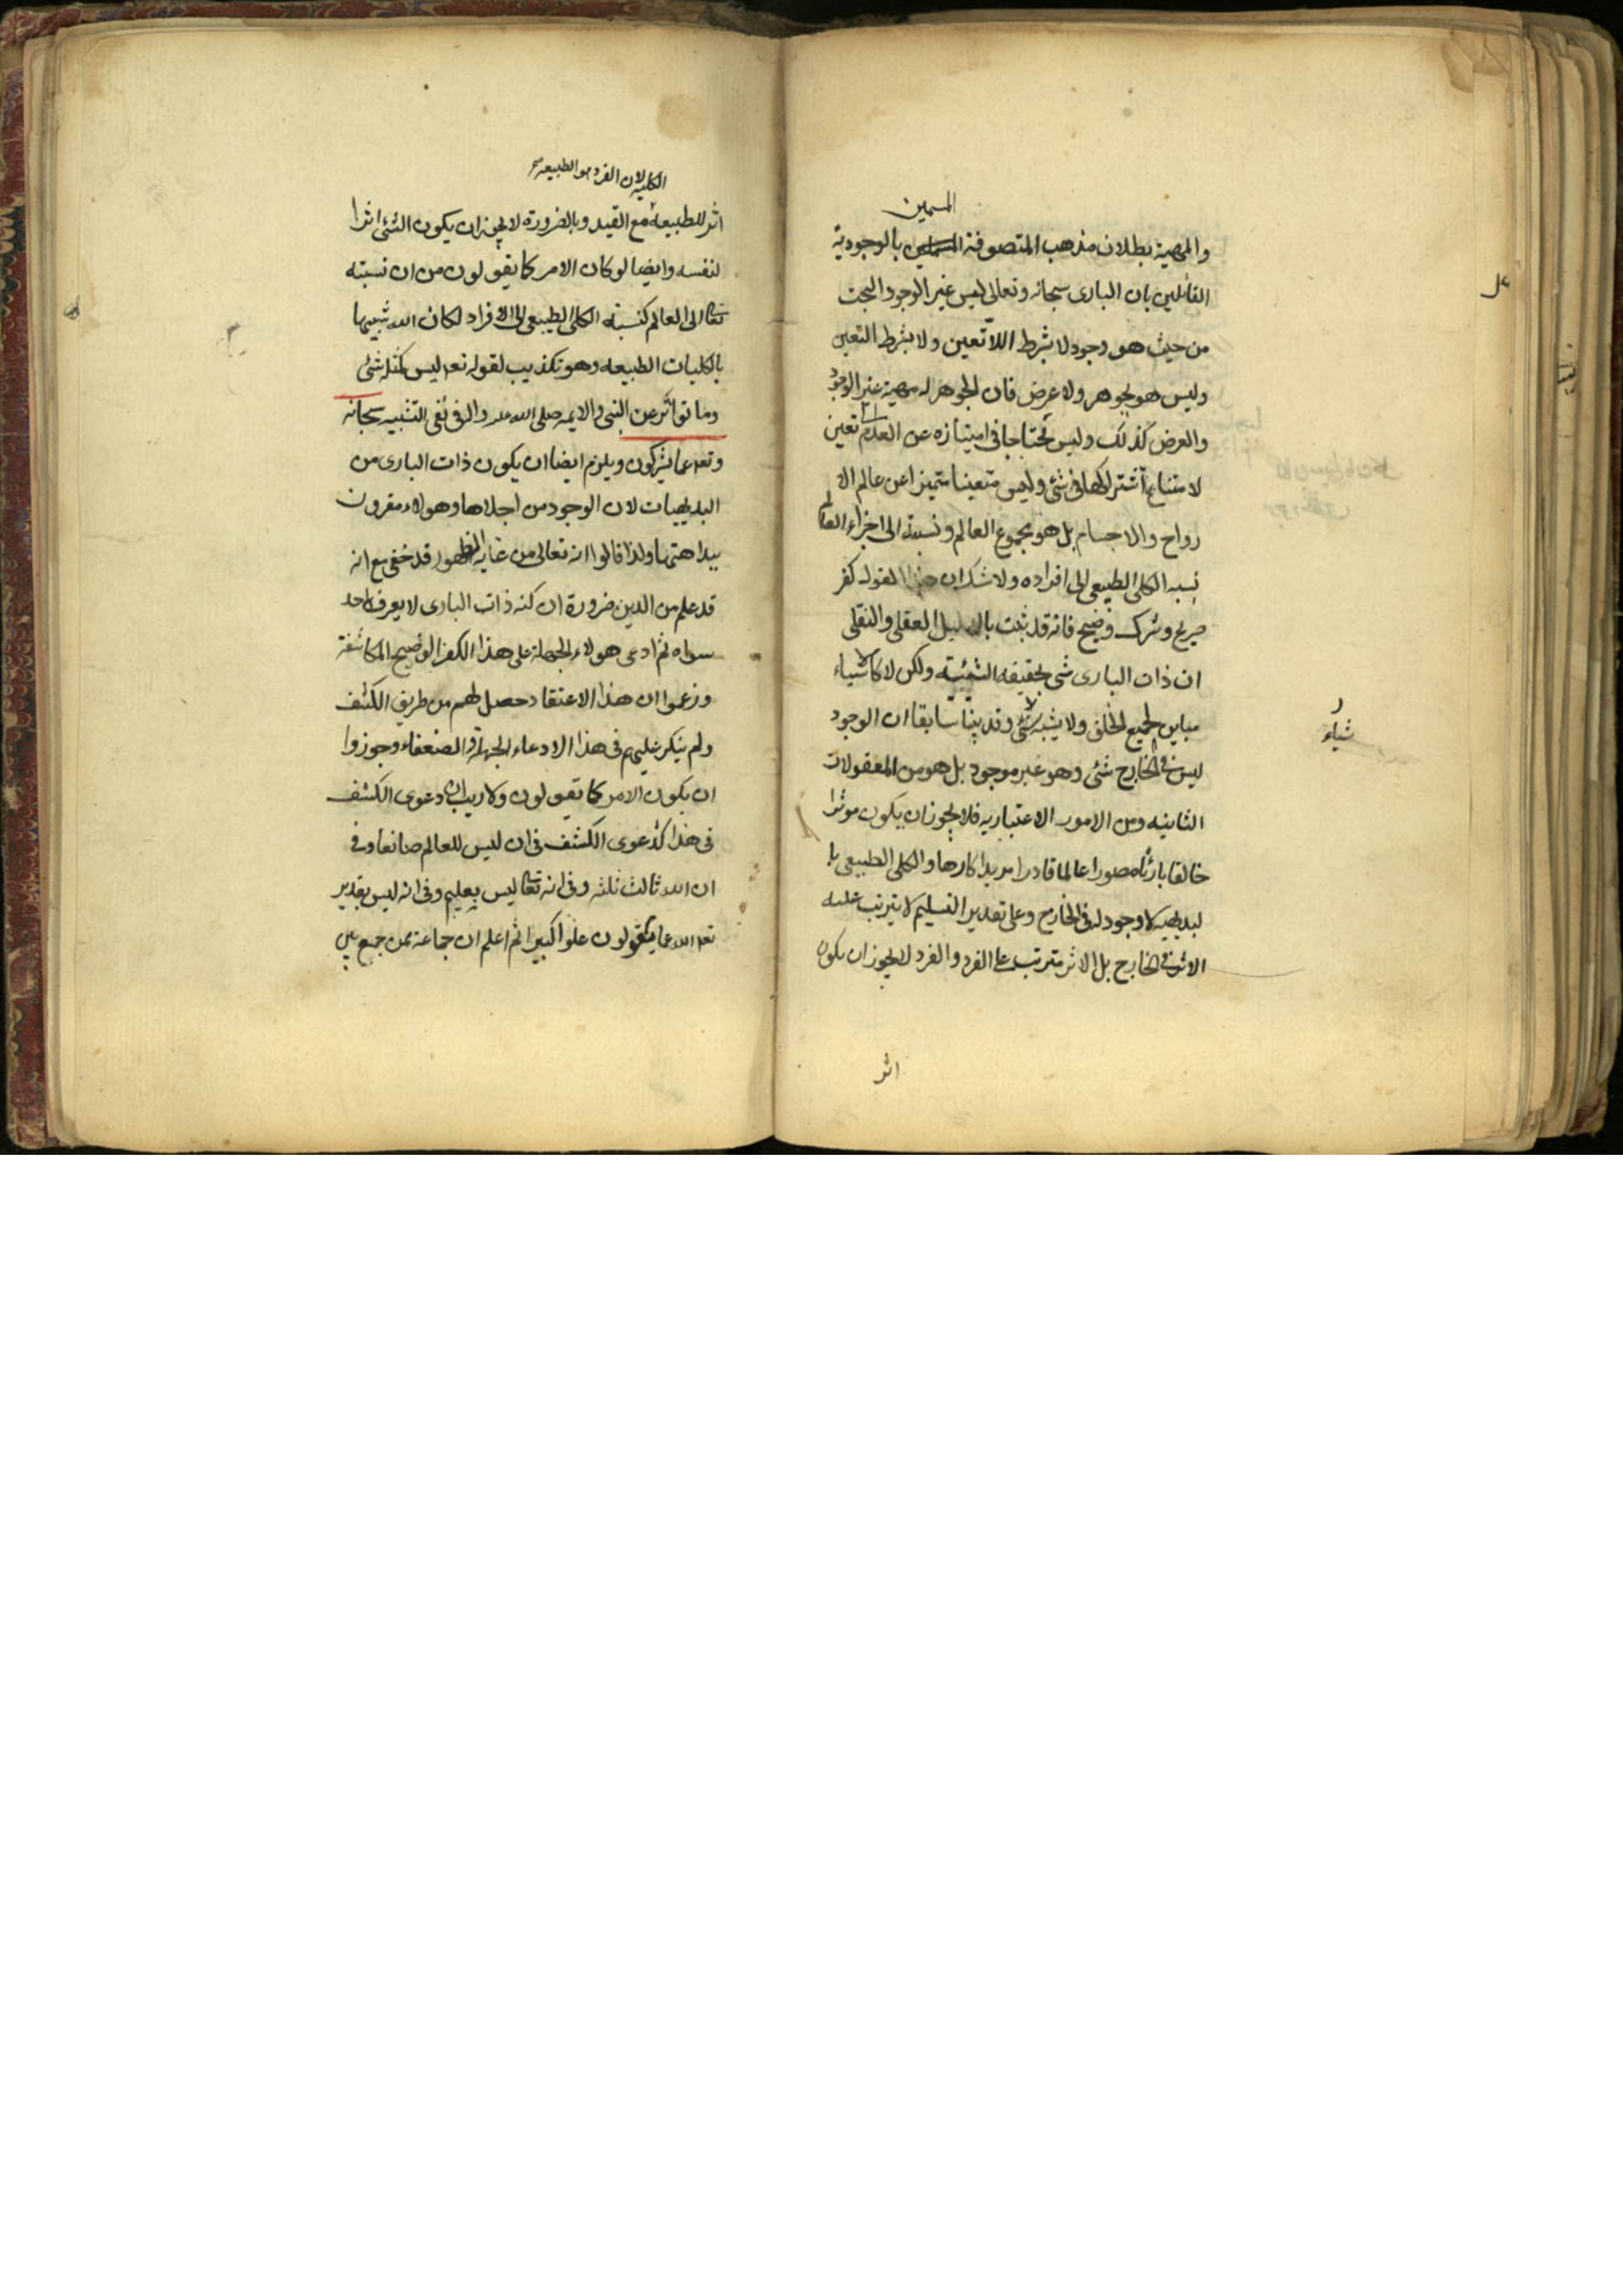 المسمين
والمهية بطلان مذهب المتصوفة المسلمين بالوجودية
القائلين بان البارى سبحانه وتعالى ليس غير الوجود البحت
من حيث هو وجود لا بشرط اللاتعين ولا بشرط التعين
وليس هو بجوهر ولا عرض فان الجوهر له مهية غير الوجود
والعرض كذلك وليس محتاجا فى امتيازه عن العدم الى تعين
لامتناع اشتراكهما فى شئ وليس متعينا متميزا عن عالم الا
رواح والاجسام بل هو مجموع العالم ونسبته الى اجزاء العالم
نسبه الكلى الطبيعى الى افراده ولا شك ان هذا القول كفر
صريح وشرك وضيح فانه قد ثبت بالدليل العقلى والنقلى
ان ذات البارى شى بحقيقه الشيئية ولكن لا كالاشياء
شياء
مباين لجميع الخلق ولا يشبه شئ وقد بينا سابقا ان الوجود
ليس فى الخارج شئ وهو غير موجود بل هو من المعقولات
الثانيه ومن الامور الاعتباريه فلا يجوز ان يكون موثرا
خالقا بارئا مصورا عالما قادرا مريدا كارها والكلى الطبيعى با
لبديهيه لا وجود له فى الخارج وعلى تقدير التسليم لا يترتب عليه
الاثر فى الخارج بل الاثر مترتب على الفرد والفرد لا يجوز ان يكون
اثر
الكليه لان الفرد هو الطبيعه
اثر للطبيعة مع القيد وبالضرورة لا يجوز ان يكون الشئ اثرا
لنفسه وايضا لو كان الامر كما يقولون من ان نسبته
تعالى الى العالم كنسبته الكلى الطبيعى الى الافراد لكان الله شبيها
بالكليات الطبيعه وهو تكذيب لقوله تعه ليس كمثله شئ
وما تواتر عن النبى والائمه صلى الله عليه واله فى نفى التشبيه سبحانه
وتعه عما يشركون ويلزم ايضا ان يكون ذات البارى من
البديهيات لان الوجود من اجلاها وهولاء مقرون
ببداهتها ولذا قالوا انه تعالى من غايه الظهور قد خفى مع انه
قد علم من الدين ضرورة ان كنه ذات البارى لا يعرفه احد
سواه ثم ادعى هولاء الجهلة على هذا الكفر الوضيح المكاشفة
وزعموا ان هذا الاعتقاد حصل لهم من طريق الكشف
ولم ينكر عليهم فى هذا الادعاء الجهلة والضعفاء وجوزوا
ان يكون الامر كما يقولون ولا ريب ان دعوى الكشف
فى هذا كدعوى الكشف فى ان ليس للعالم صانعا وفى
ان الله ثالث ثلثه وفى انه تعالى ليس بعليم وفى انه ليس بقدير
تعه الله عما يقولون علوا كبيرا ثم اعلم ان جماعة ممن جمع بين